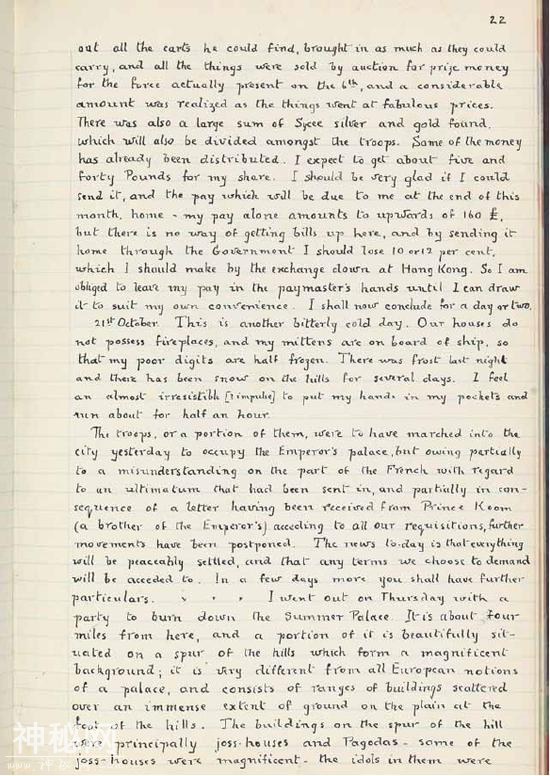 22
out all the carts he could find, brought in as much as they could
carry, and all the things were sold by auction for prize money
for the force actually present on the 6th, and a considerable
amount was realized as the things went at fabulous prices.
There was also a large sum of Sycee silver and gold found,
which will also be divided amongst the troops. Some of the money
has already been distributed. I expect to get about five and
forty Pounds for my share. I should be very glad if I could
send it, and the pay which will be due to me at the end of this
month, home - my pay alone amounts to upwards of 160 £,
but there is no way of getting bills up here, and by sending it
home through the Government I should lose 10 or 12 per cent,
which I should make by the exchange down at Hang Kong. So I am
obliged to leave my pay in the paymaster's hands until I can draw
it to suit my own convenience. I shall now conclude for a day or two.
21st October. This is another bitterly cold day. Our houses do
not possess fireplaces, and my mittens are on board of ship, so
that my poor digits are half frozen. There was frost last night
and there has been snow on the hills for several days. I feel
an almost irresistible [? impulse] to put my hands in my pockets and
run about for half an hour.
The troops, or a portion of them, were to have marched into the
city yesterday to occupy the Emperor's palace, but owing partially
to a misunderstanding on the part of the French with regard
to an ultimatum that had been sent in, and partially in con-
sequence of a letter having been received from Prince Koom
(a brother of the Emperor's) acceding to all our requisitions, further
movements have been postponed. The news to-day is that everything
will be peaceably settled, and that any terms we choose to demand
will be acceded to. In a few days more you shall have further
particulars. . . . I went out on Thursday with a
party to burn down the Summer Palace. It is about four
miles from here, and a portion of it is beautifully sit-
uated on a spur of the hills which form a magnificent
background; it is very different from all European notions
of a palace, and consists of ranges of buildings scattered
over an immense extent of ground on the plain at the
foot of the hills. The buildings on the spur of the hill
were principally joss-houses and Pagodas - some of the
joss-houses were magnificent - the idols in them were
神秘网